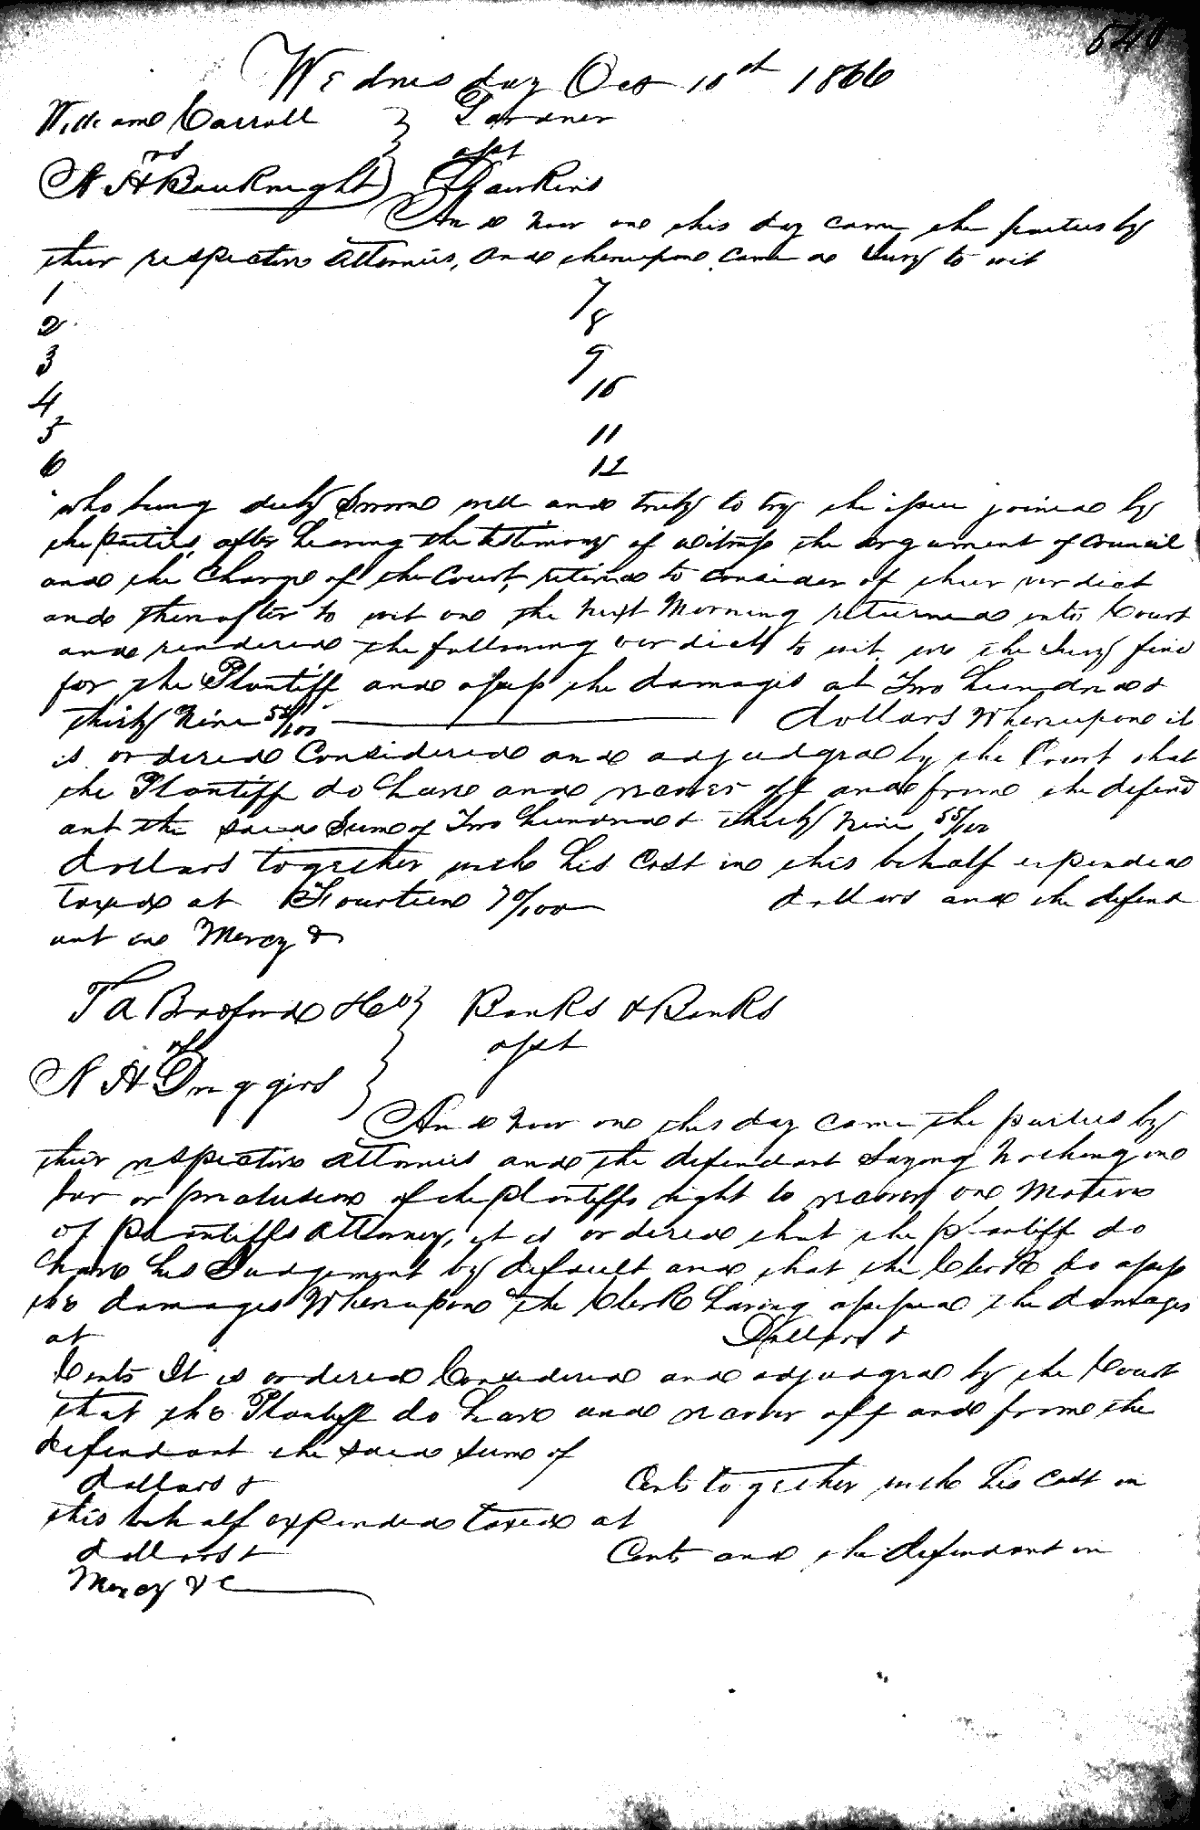 Wednesday Oct 10th 1866
William Carroll } Gardner
vs asst
N H Bouknight } Hawkins
And now on this day came the parties by
their respective attornies, and thereupon came a Jury to wit
1 7
2 8
3 9
4 10
5 11
6 12
who being duly Sworn well and truly to try the issue joined by
the parties, after hearing the testimony of witness the argument of council
and the Charge of the Court, retired to consider of their verdict
and thereafter to wit on the next Morning returned into Court
and rendered the following verdict to wit we the Jury find
for the Plantiff and assess the damages at Two hundred &
thirty Nine 55/100 dollars Whereupon it
is ordered Considered and adjudged by the Court that
the Plantiff do have and recover off and from the defend
ant the said Sum of Two hundred & thirty Nine 55/100
dollars together with his Cost in this behalf expended
taxed at Fourteen 70/100 dollars and the defend
ant in Mercy &
T A Bradford & Co } Banks & Banks
vs asst
N H Druggird }
And now on this day came the parties by
their respective attornies and the defendant Saying nothing in
bar or preclusion of the plantiffs right to recover on Motion
of plantiffs attorney, it is ordered that the plantiff do
have his Judgement by default and that the Clerk do assess
the damages Whereupon the Clerk having assessed the damages
at Dollars &
Cents It is ordered Considered and adjudged by the Court
that the Plantiff do have and recover off and from the
defendant the said sum of
dollars & Cents together with his cost in
this behalf expended taxed at
dollars & Cents and the defendant in
Mercy & C